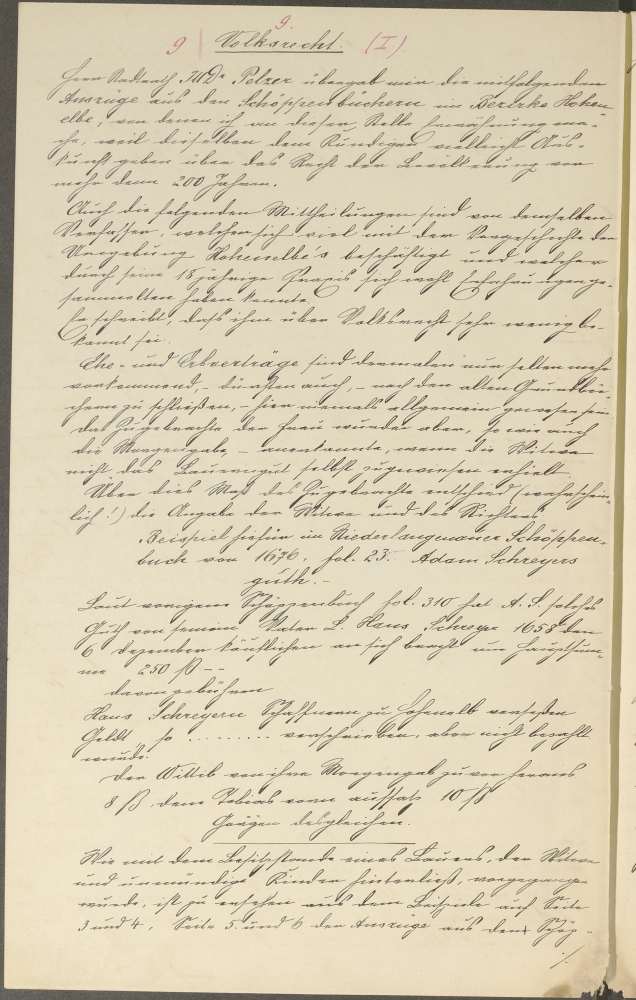 9.
9 | Volksrecht. (I)
Herr Stadtrath JUDr Pelzer übergab mir die mitfolgenden
Auszüge aus den Schöppenbüchern im Bezirke Hohen
elbe, von denen ich an dieser Stelle Erwähnung ma-
che, weil dieselben dem Kundigen vielleicht Aus-
kunft geben über das Recht der Bevölkerung vor
mehr denn 200 Jahren.
Auch die folgenden Mittheilungen sind von demselben
Verfasser, welcher sich viel mit der Vorgeschichte der
Umgebung Hohenelbe's beschäftigt und welcher
durch seine 18 jährige Praxis sich wohl Erfahrungen ge-
sammelt haben konnte.
Er schreibt, dass ihm über Volksrecht sehr wenig be-
kannt sei.
Ehe- und Erbverträge sind dermalen nur selten mehr
vorkommend, - dürften auch, - nach den alten Grundbü-
chern zu schließen, - hier niemals allgemein gewesen sein.
Das Zugebrachte der Frau wurde aber, so wie auch
die Morgengabe, - anerkannt, wenn die Witwe
nicht das Bauerngut selbst zugewiesen erhielt.
Über dies Maß des Zugebrachten entschied (wahrschein-
lich!) die Angabe der Witwe und des Richters
Beispiel hiefür im Niederlangenauer Schöppen-
buch von 1676, fol. 23. Adam Schreyers
guth. -
Laut vorigem Schöppenbuch fol. 310 hat A. S. solches
Guth von seinem Vater L. Hans Schreyer 1658 den
6 Dezember käuflichen an sich bracht um Hauptsum-
me 250 ß --
davon gebühren
Hans Schreyern Schaffnern zu Hohenelb
Geldt, so ......... verschrieben, aber nicht bezahlt
wurde.
Der Wittib von ihre Morgengab zuvor heraus
8 ß. dem Tobias vorn aussatz 10 ß
Görgen desgleichen.
Wie mit dem Besitzstande eines Bauers, der Witwe
und unmündige Kinder hinterließ, vorgegangen
wurde, ist zu ersehen aus dem Beispiele auf Seite
3 und 4, Seite 5. und 6 der Auszüge aus dem Schöp-
./.